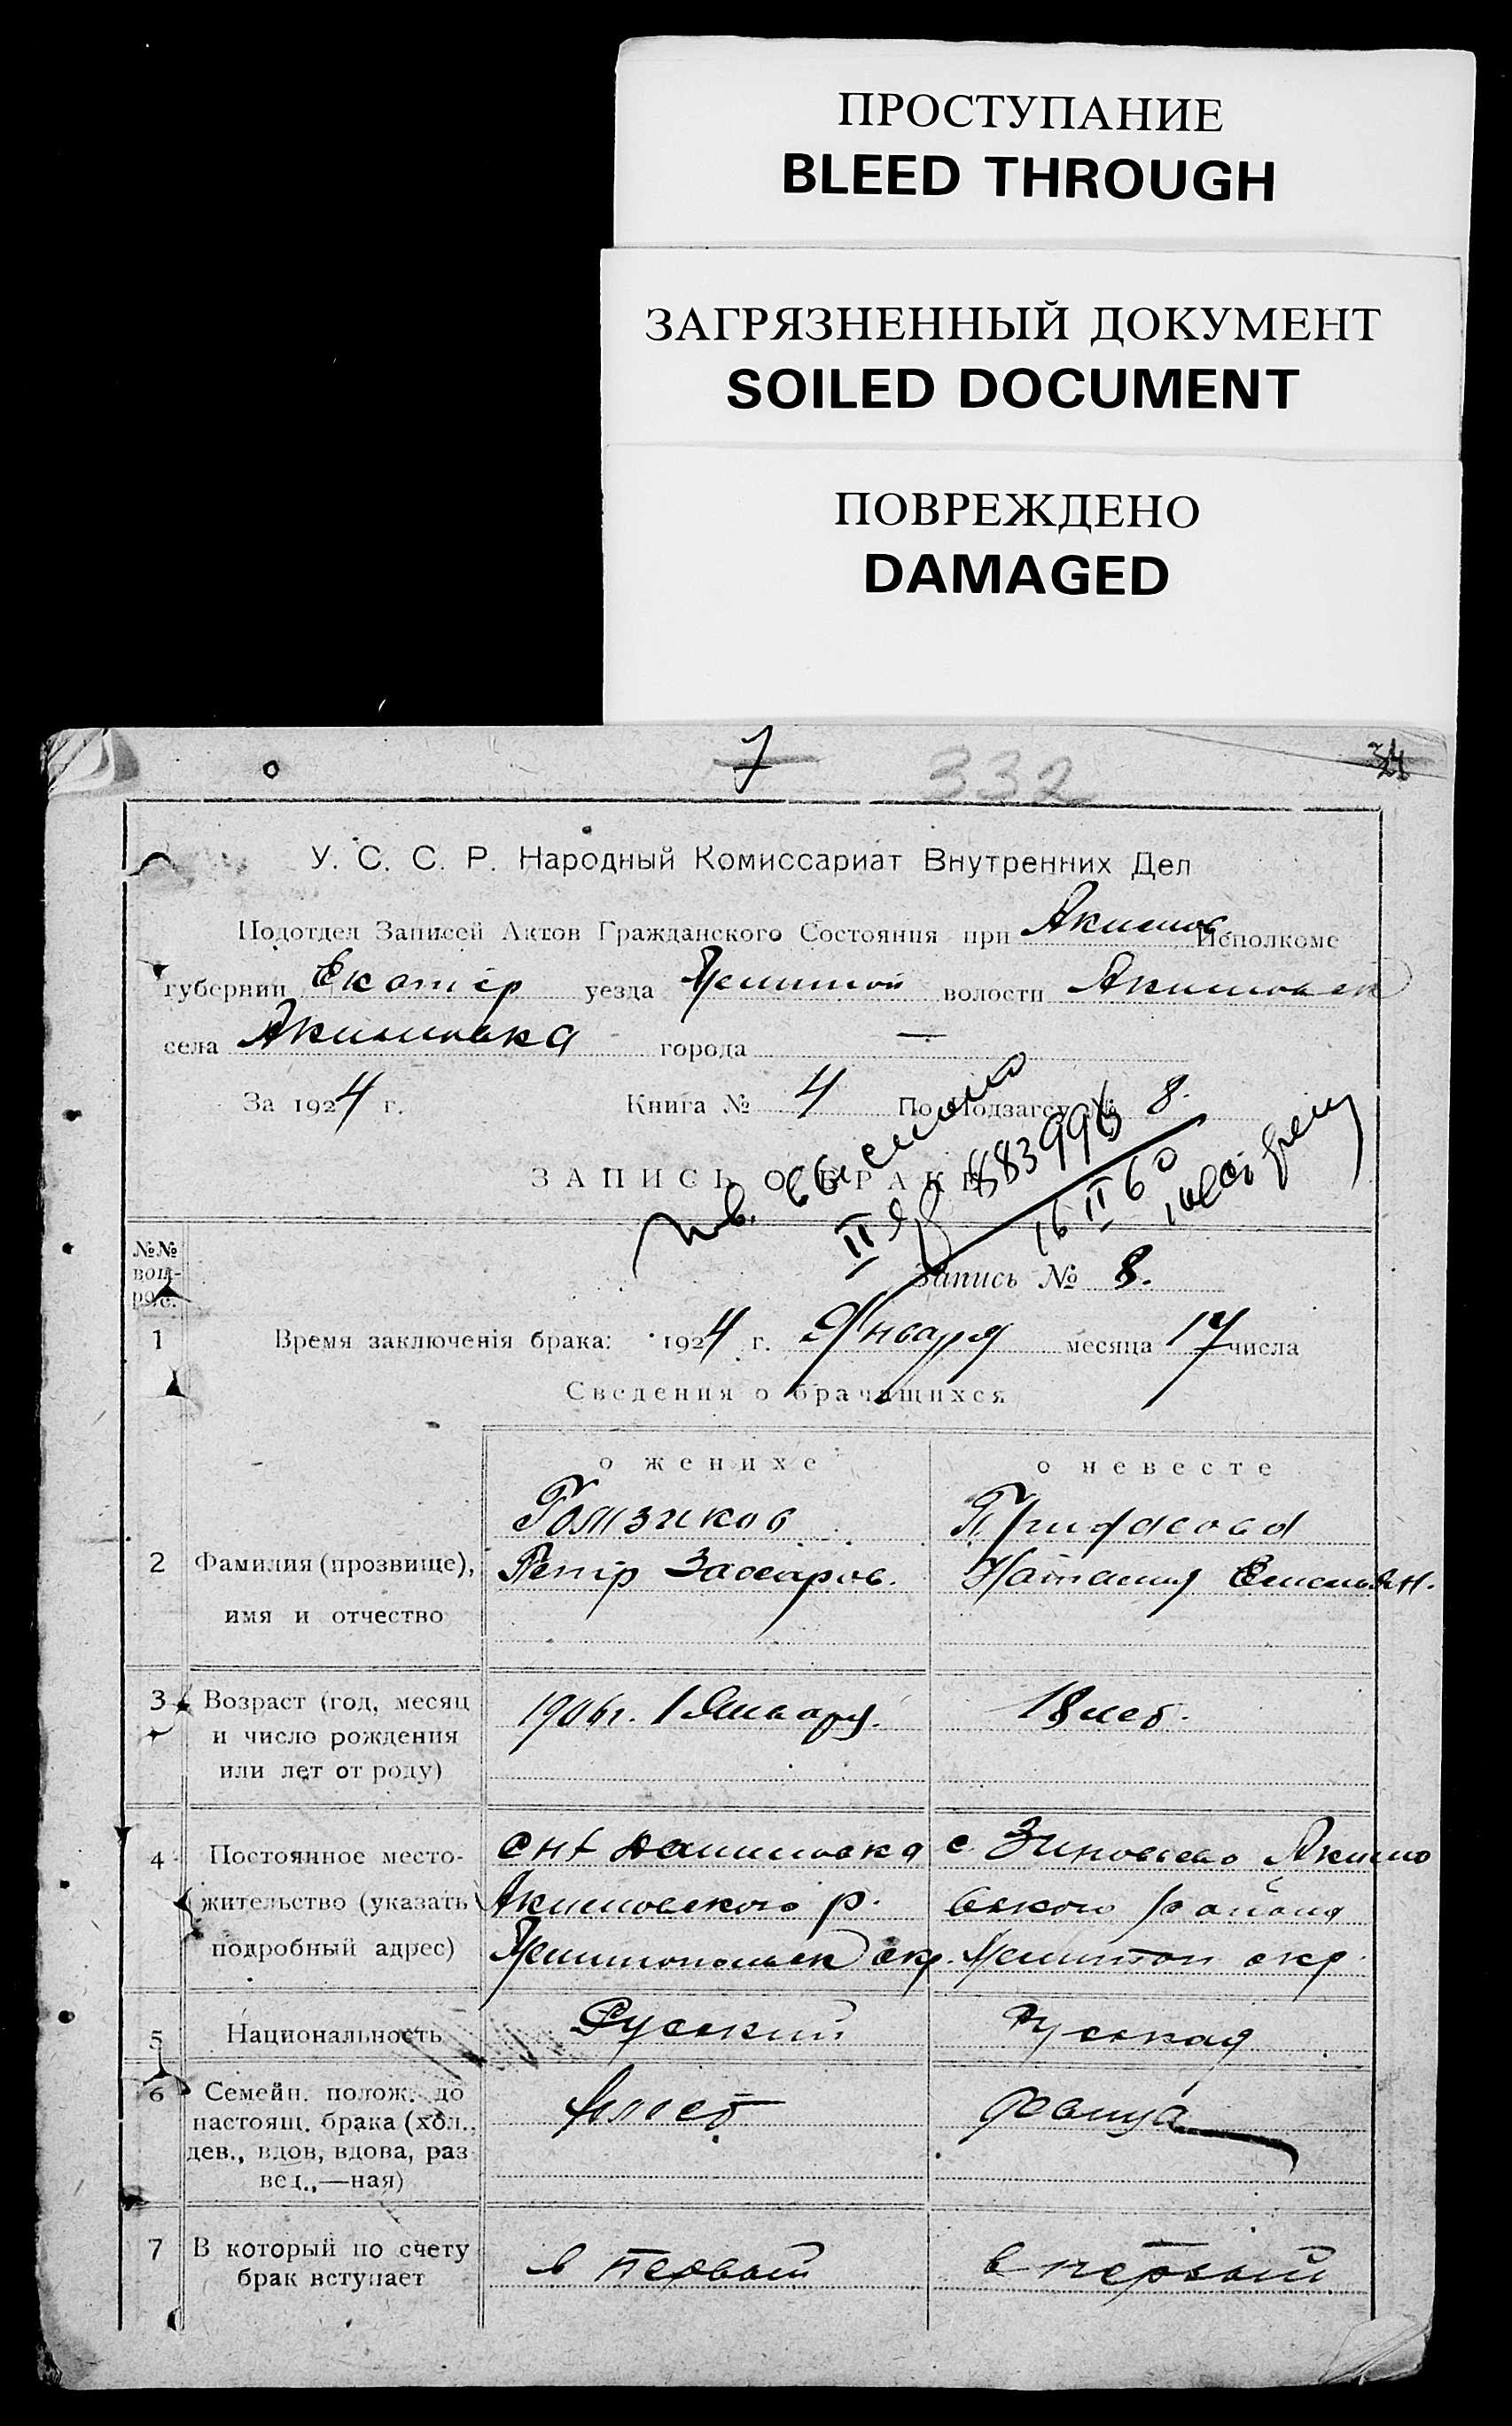 ПРОСТУПАНИЕ
BLEED THROUGH
ЗАГРЯЗНЕННЫЙ ДОКУМЕНТ
SOILED DOCUMENT
ПОВРЕЖДЕНО
DAMAGED
7 332
У. С. С. Р. Народный Комиссариат Внутренних Дел
Подотдел Записей Актов Гражданского Состояния при Акимов Исполкоме
губернии Екатер уезда Мелитоп волости Акимовск
села Акимовка города —
За 1924 г. Книга № 4 По Подзагсу № 8.
ЗАПИСЬ О БРАКЕ
II 883996
16 II 60
Запись № 8.
№№ вопрос.
1 Время заключенія брака: 1924 г. Января месяца 17 числа
Сведения о брачащихся
о женихе о невесте
Гомзиков
2 Фамилия (прозвище), Петр Захаров. Наталия
имя и отчество
3 Возраст (год, месяц 1906 г. 1 Января. 18 лет.
и число рождения
или лет от роду)
4 Постоянное место- с. Зиновьево Акимо
жительство (указать Акимовского р. вского района
подробный адрес) Мелитопольск окр. Мелитоп окр.
5 Национальность Русский Руськая
6 Семейн. полож. до холост девица
настоящ. брака (хол.,
дев., вдов, вдова, раз
вед.,—ная)
7 В который по счету в первый в первый
брак вступает